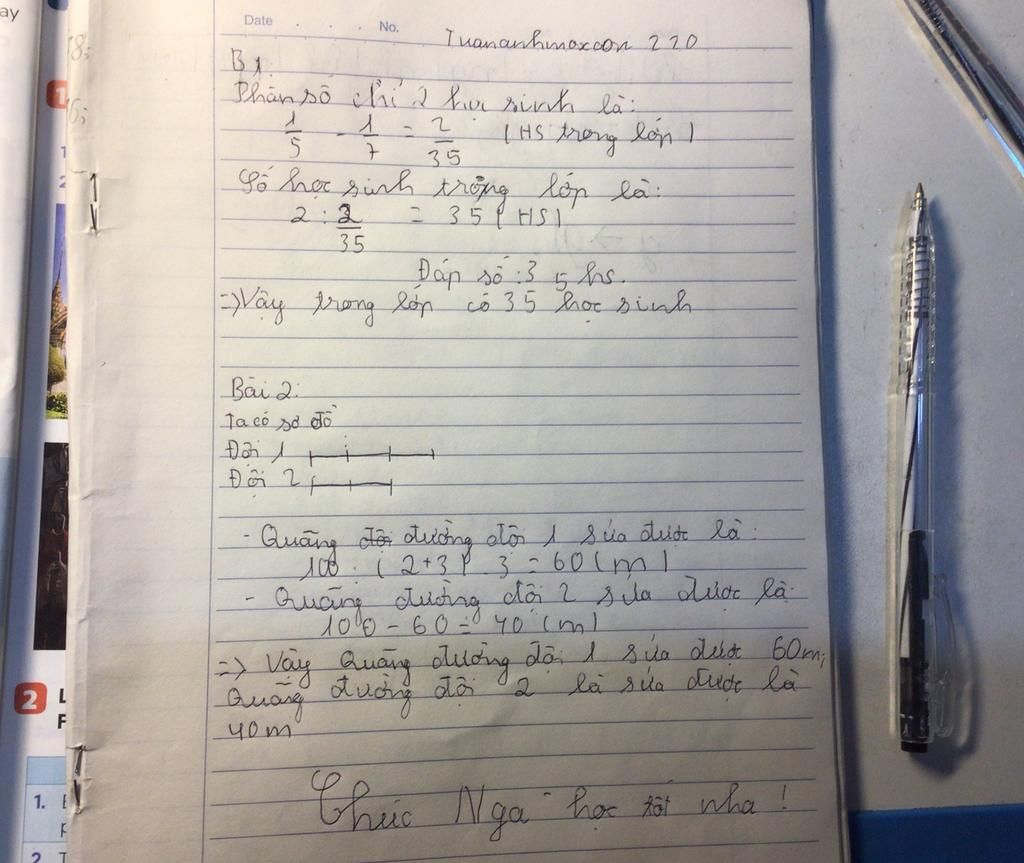 ay
Date . . . . No.
Tuananhmoxcon 220
B1.
Phân số chỉ 2 học sinh là:
1/5 - 1/7 = 2/35 (HS trong lớp)
Số học sinh trong lớp là:
2 : 2/35 = 35 (HS)
Đáp số : 35 hs.
=> Vậy trong lớp có 35 học sinh
Bài 2:
Ta có sơ đồ
Đội 1
Đội 2
- Quãng đường đội 1 sửa được là:
100 : (2+3) . 3 = 60 (m)
- Quãng đường đội 2 sửa được là:
100 - 60 = 40 (m)
=> Vậy Quãng đường đội 1 sửa được 60m;
Quãng đường đội 2 là sửa được là
40m
Chúc Nga học tốt nha !
8;
6;
1
1
2
2
L
F
1.
2.